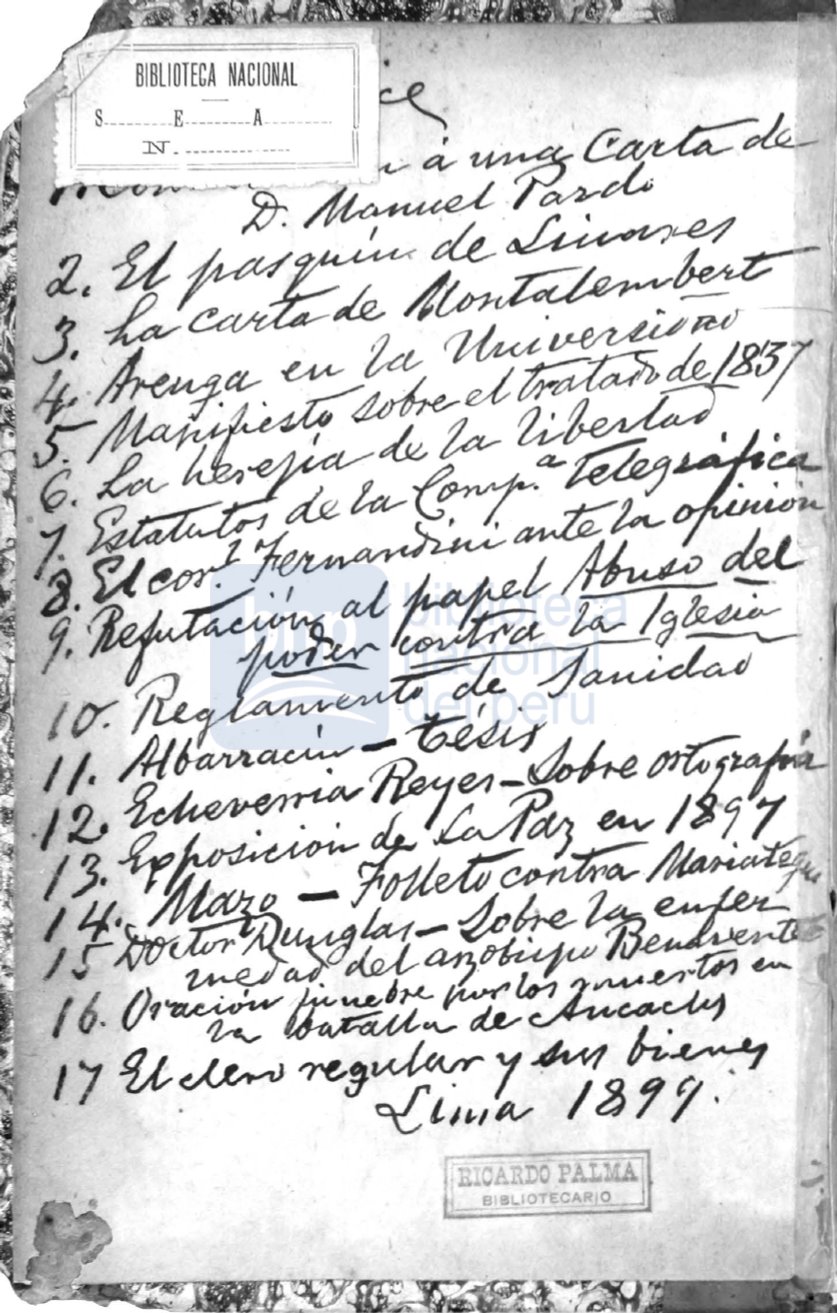 BIBLIOTECA NACIONAL
S........ E......... A..........
N. ...............
ice
á una Carta de
D. Manuel Pardo
2. El pasquín de Linares
3. La carta de Montalembert
4. Arenga en la Universidad
5. Manifiesto sobre el tratado de 1837
6. La herejía de la libertad
7. Estatutos de la Comp.ª telegráfica
8. El cor.l Fernandini ante la opinión
9. Refutación al papel Abuso del
poder contra la Iglesia
10. Reglamento de Sanidad
11. Albarracín – Tésis
12. Echeverria Reyes – Sobre ortografía
13. Exposición de La Paz en 1897
14. Mazo – Folleto contra Mariátegui
15 Doctor Dunglas – Sobre la enfer
medad del arzobispo Benavente
16. Oración fúnebre por los muertos en
la batalla de Ancachs
17 El clero regular y sus bienes
Lima 1899.
RICARDO PALMA
BIBLIOTECARIO
bnp biblioteca
nacional
del perú